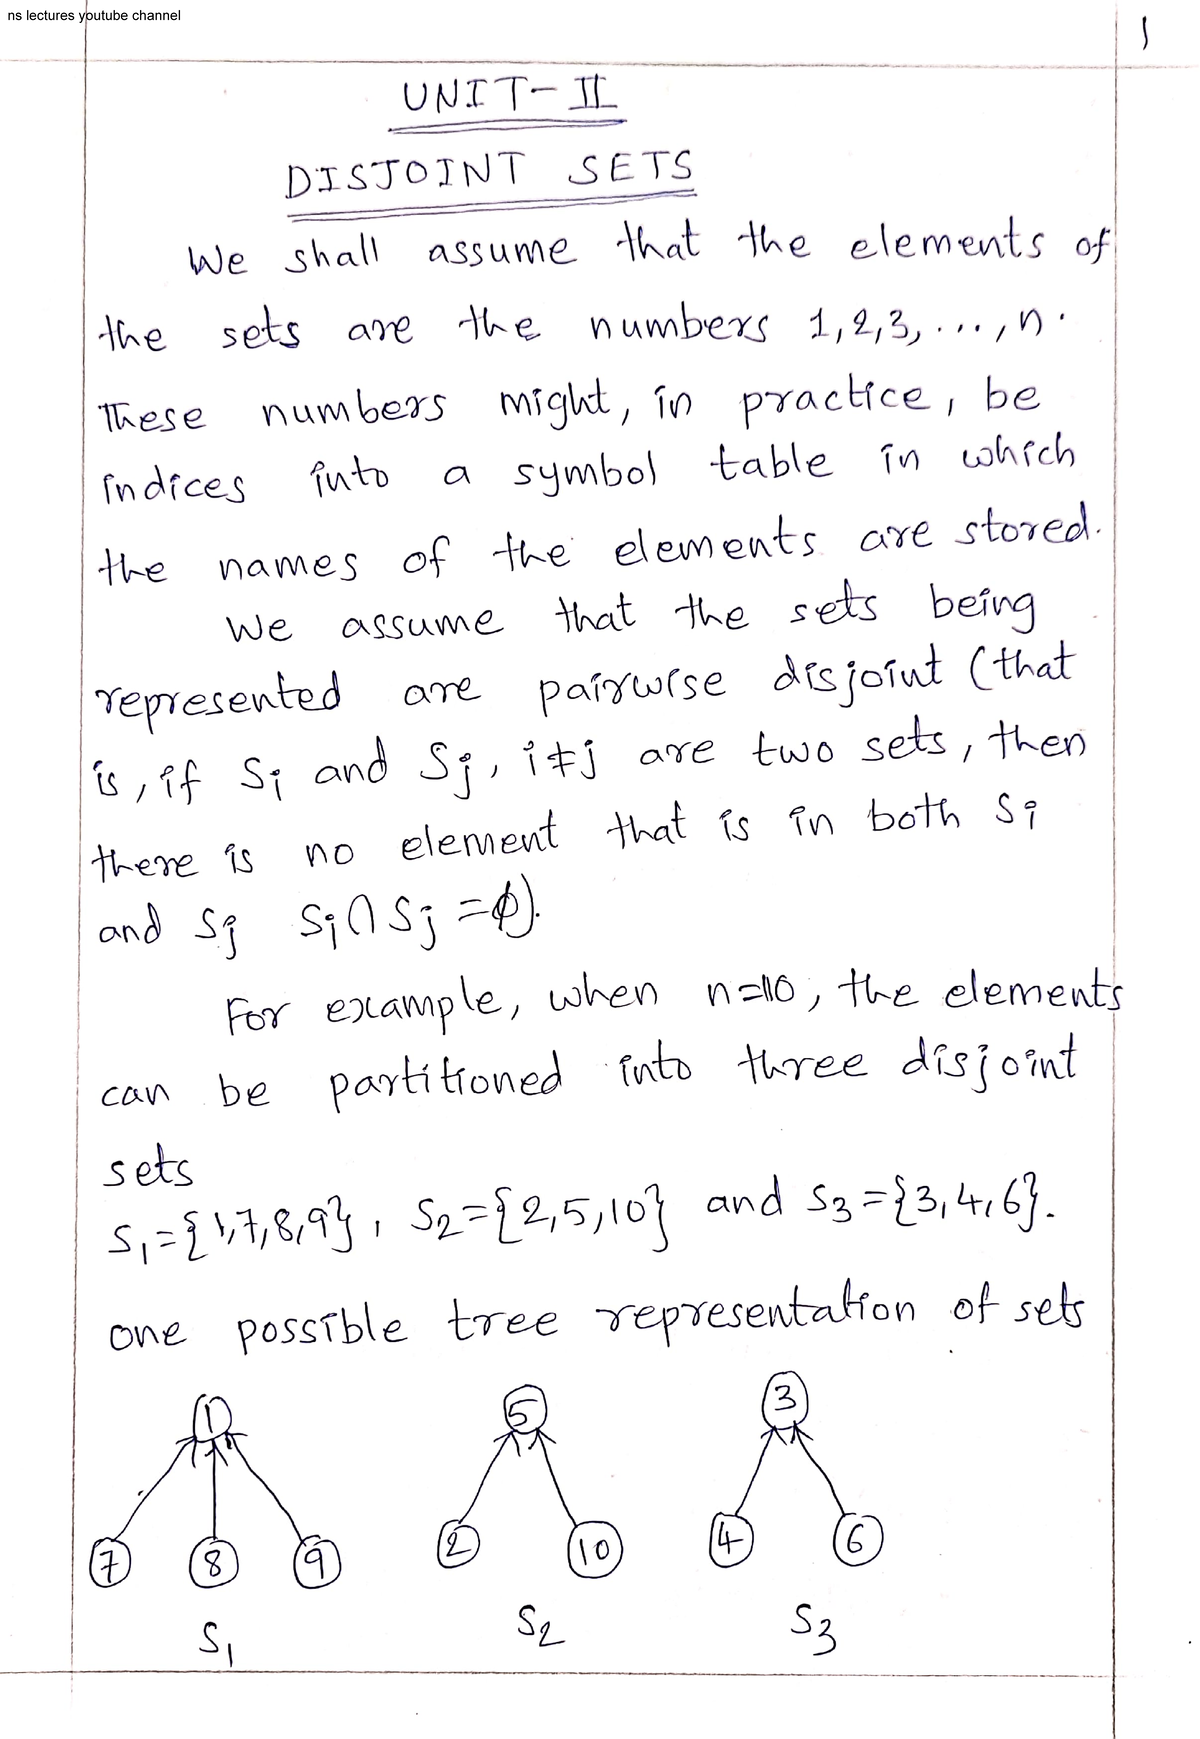 ns lectures youtube channel
1
UNIT-II
DISJOINT SETS
We shall assume that the elements of
the sets are the numbers 1,2,3,...,n.
These numbers might, in practice, be
indices into a symbol table in which
the names of the elements are stored.
We assume that the sets being
represented are pairwise disjoint (that
is, if Si and Sj, i≠j are two sets, then
there is no element that is in both Si
and Sj Si∩Sj=ϕ).
For example, when n=10, the elements
can be partitioned into three disjoint
sets
S1={1,7,8,9}, S2={2,5,10} and S3={3,4,6}.
one possible tree representation of sets
1 5 3
7 8 9 2 10 4 6
S1 S2 S3